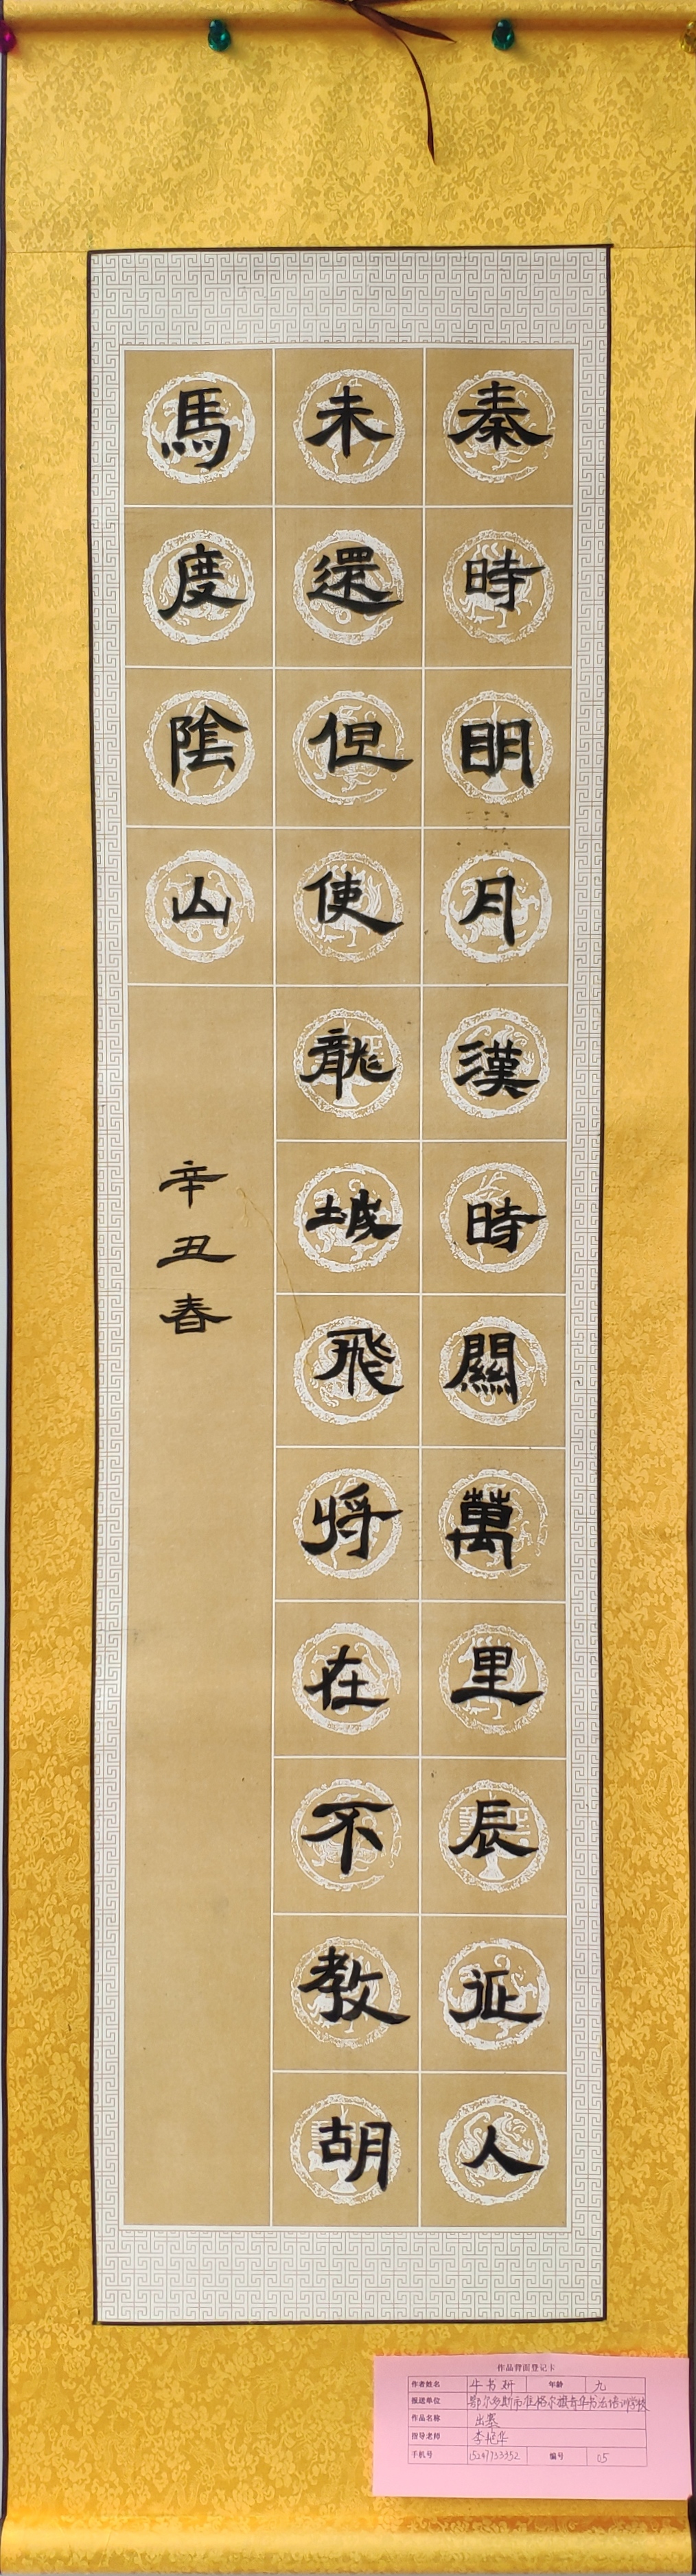 秦時明月漢時關萬里長征人
未還但使龍城飛將在不教胡
馬度陰山
辛丑春
作品背面登记卡
作者姓名 牛书研 年龄 九
报送单位 鄂尔多斯市准格尔旗奇华书法培训学校
作品名称 出塞
指导老师 李艳华
手机号 15247733352 编号 05